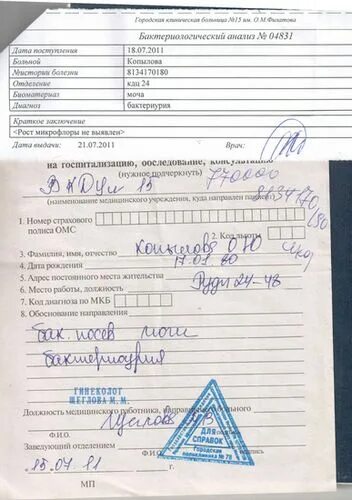 Городская клиническая больница №15 им. О.М.Филатова
Бактериологический анализ № 04831
Дата поступления 18.07.2011
Больной Копылова
№истории болезни 8134170180
Отделение кдц 24
Биоматериал моча
Диагноз бактериурия
Краткое заключение
<Рост микрофлоры не выявлен>
Дата выдачи: 21.07.2011 Врач:
на госпитализацию, обследование, консультацию
(нужное подчеркнуть) 770000
15 8134170
180
(наименование медицинского учреждения, куда направлен пациент)
1. Номер страхового
полиса ОМС 2. Код льготы
3. Фамилия, имя, отчество Копылова О Ю
4. Дата рождения 17.01.80
5. Адрес постоянного места жительства Рудн 24-48
6. Место работы, должность
7. Код диагноза по МКБ
8. Обоснование направления
бак. посев мочи
бактериурия
ГИНЕКОЛОГ
ЩЕГЛОВА М.М.
Должность медицинского работника, направившего больного
Щеглова
Ф.И.О. подпись
Заведующий отделением
Ф.И.О.
ДЛЯ
СПРАВОК
Городская
поликлиника № 78
15.07.11 г.
МП